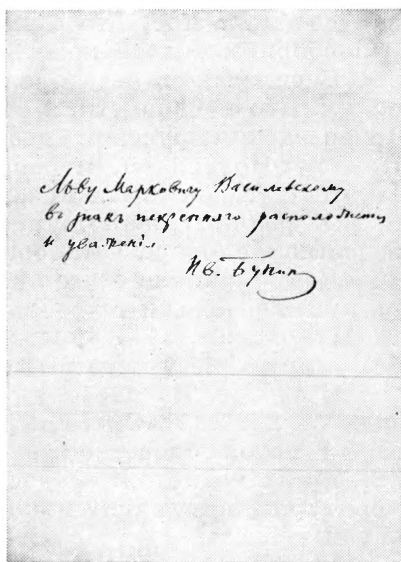 Льву Марковичу Василевскому
въ знакъ искренняго расположенія
и уваженія.
Ив. Бунин